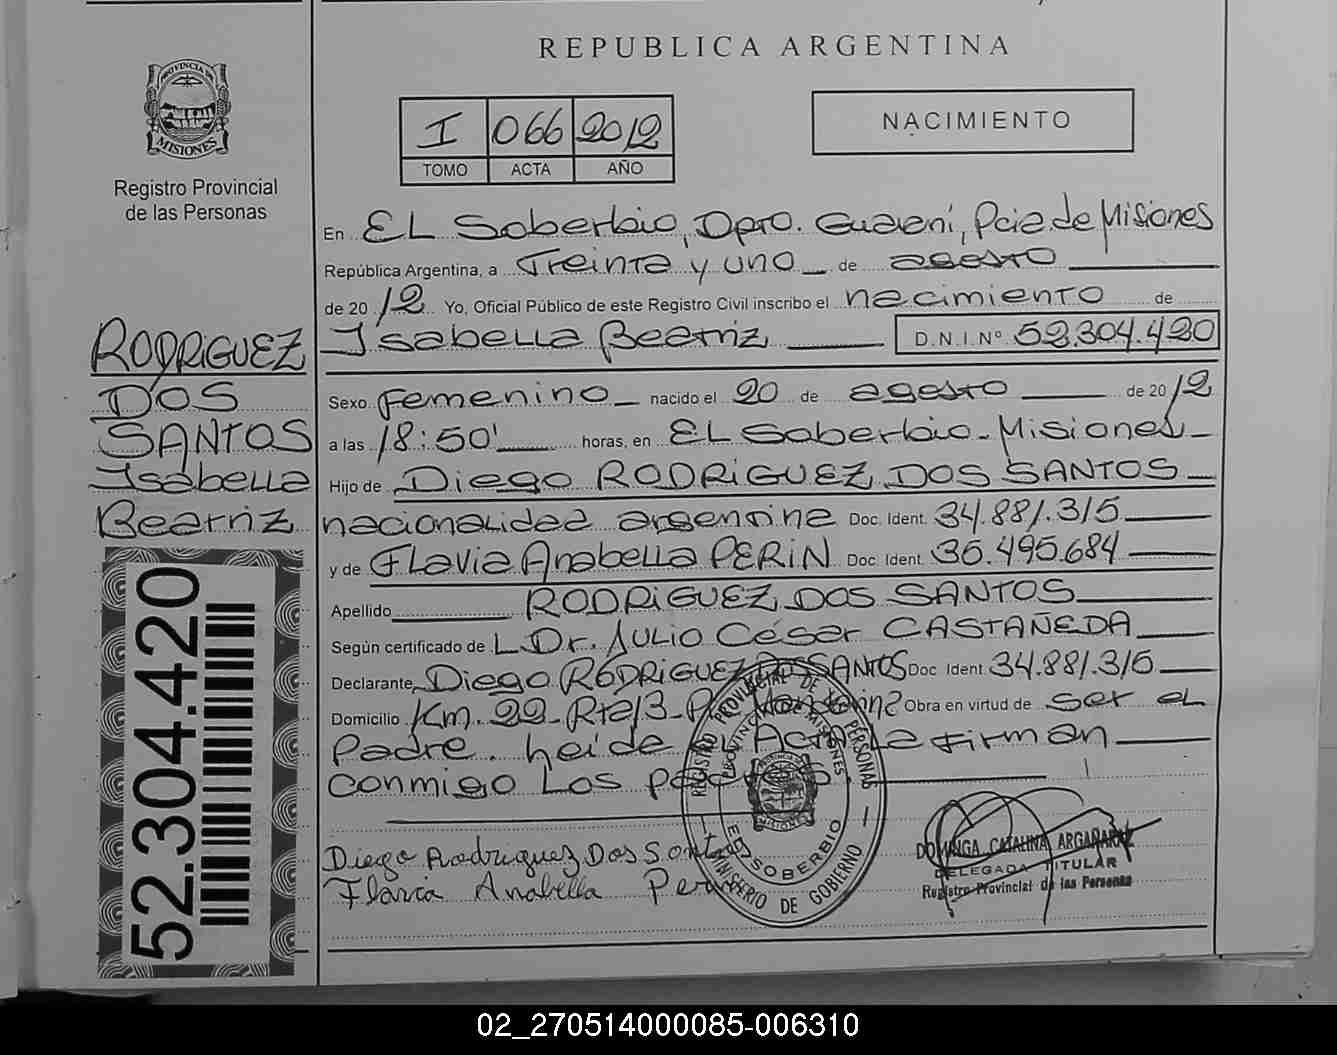 REPUBLICA ARGENTINA
PROVINCIA DE
MISIONES
Registro Provincial
de las Personas
I 066 2012
TOMO ACTA AÑO
NACIMIENTO
En EL Soberbio, Dpto. Guaraní, Pcia de Misiones
República Argentina, a Treinta y uno de agosto
de 2012 Yo, Oficial Público de este Registro Civil inscribo el nacimiento de
Isabella Beatriz D.N.I.Nº 52.304.420
RODRIGUEZ
DOS
SANTOS
Isabella
Beatriz
Sexo Femenino nacido el 20 de agosto de 2012
a las 18:50' horas, en EL Soberbio - Misiones
Hijo de Diego RODRIGUEZ DOS SANTOS
nacionalidad argentina Doc. Ident. 34.881.315
y de Flavia Anabella PERIN Doc. Ident. 36.495.684
Apellido RODRIGUEZ DOS SANTOS
Según certificado de L Dr. JULIO César CASTAÑEDA
Declarante Diego RODRIGUEZ DOS SANTOS Doc Ident. 34.881.315
Domicilio Km. 22 - Rta 13 - Obra en virtud de ser el
Padre. heida el Acta la firman
conmigo Los padres.
Diego Rodriguez Dos Santos
Flavia Anabella Perin
REGISTRO PROVINCIAL DE LAS PERSONAS
PROVINCIA DE MISIONES
EL SOBERBIO
MINISTERIO DE GOBIERNO
DOMINGA CATALINA ARGAÑARAZ
DELEGADA TITULAR
Registro Provincial de las Personas
52.304.420
02_270514000085-006310